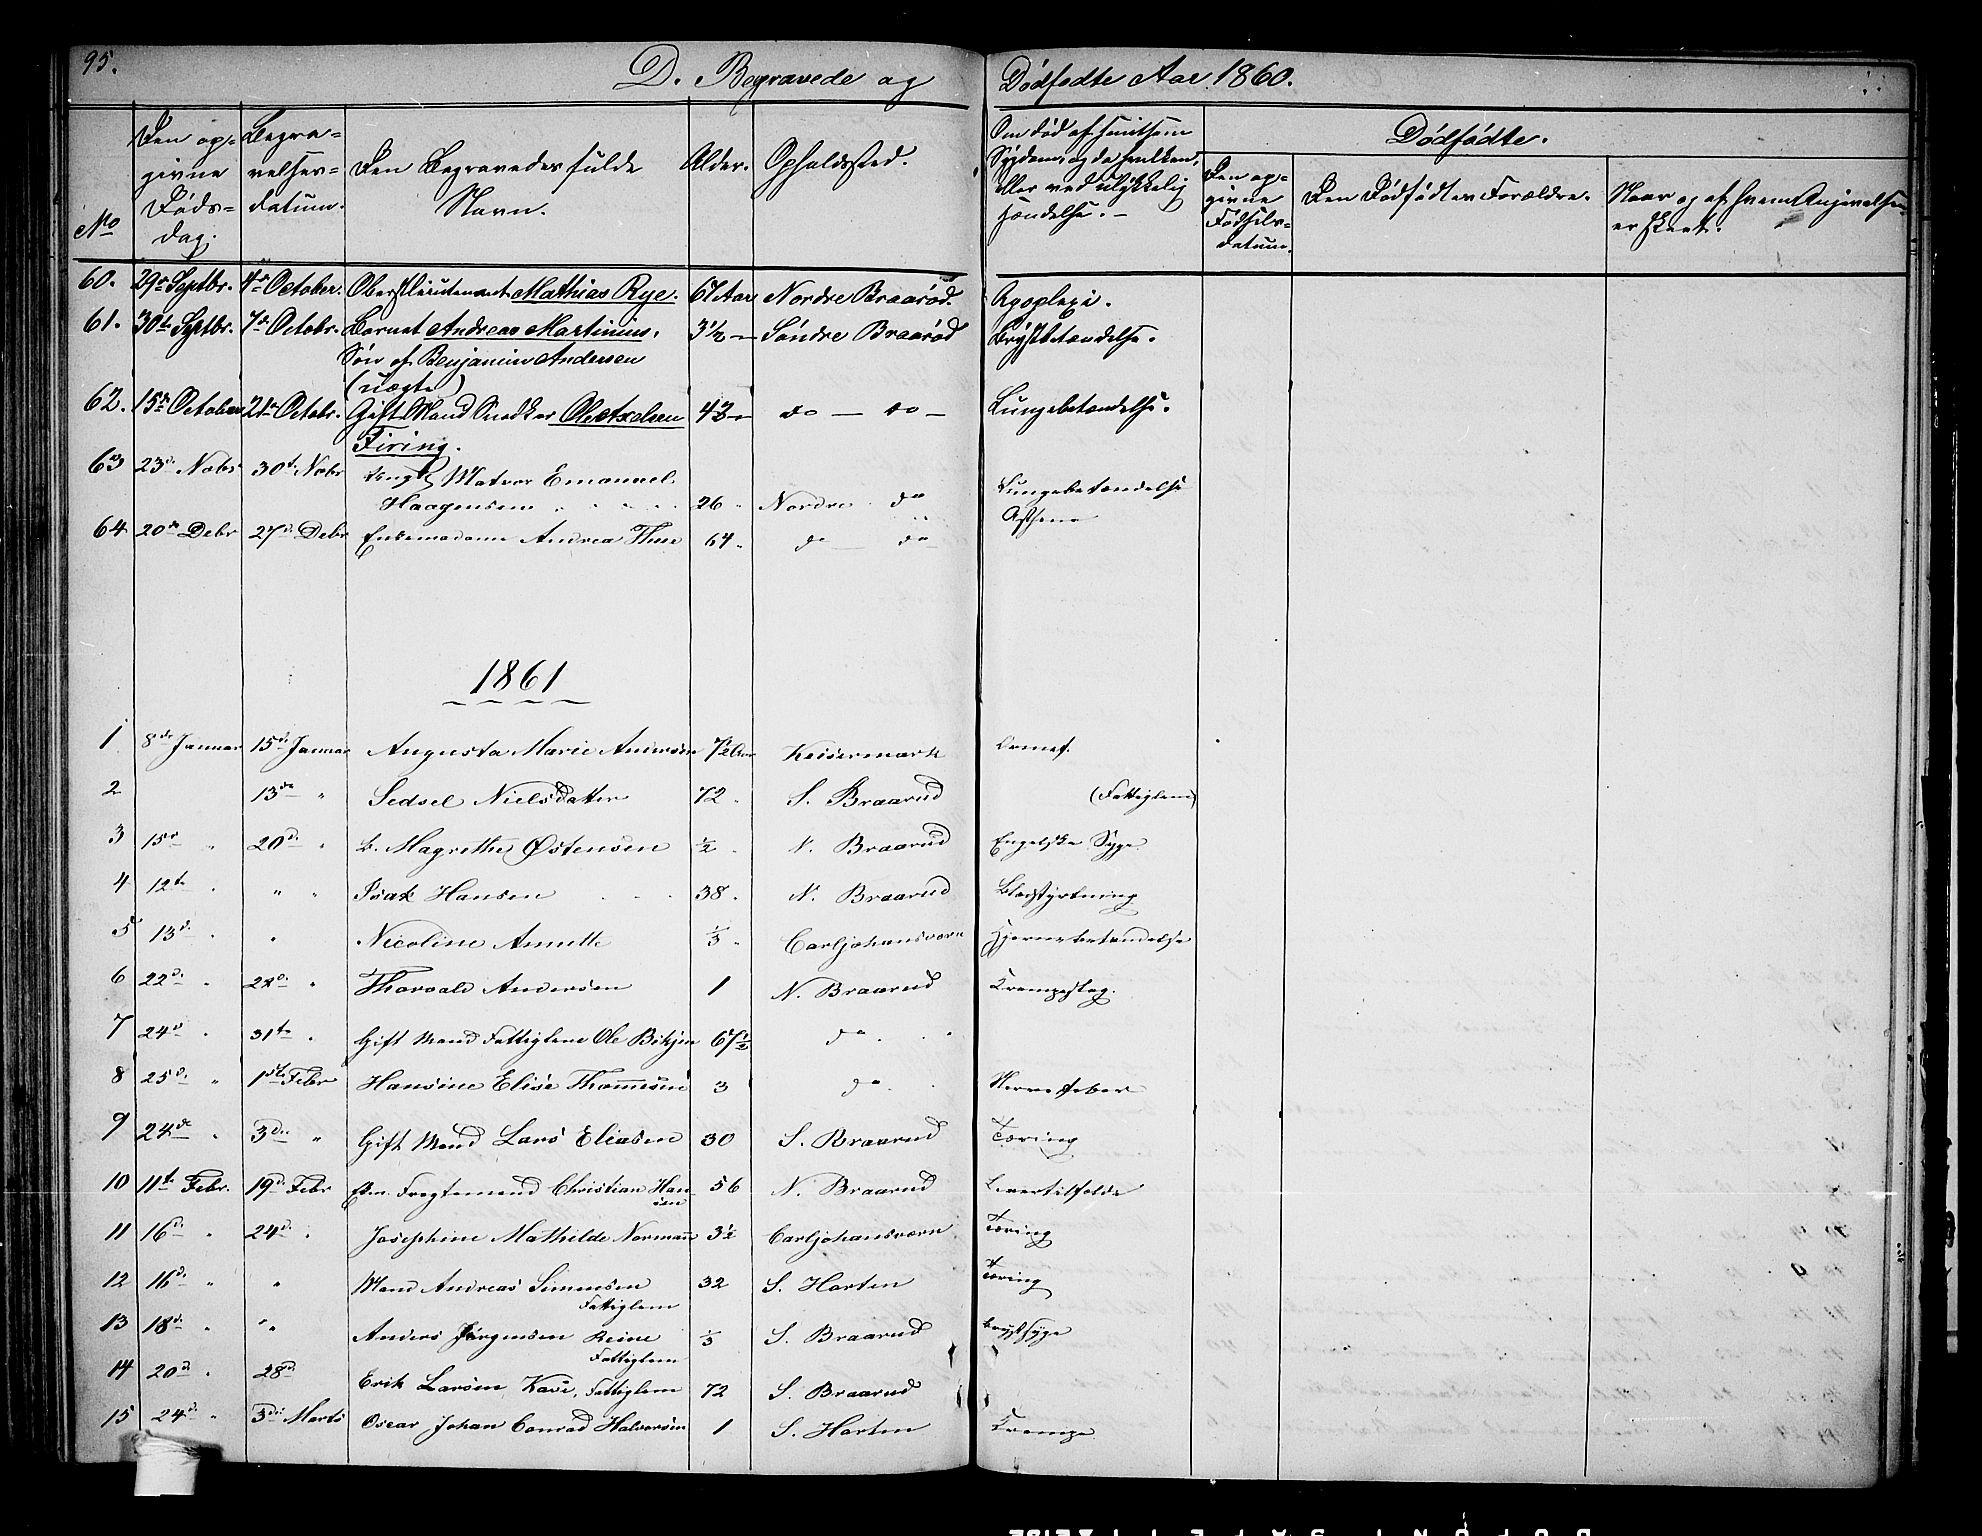 95.
D. Begravede og Dödfødte Aar 1860.
No
Den op-
givne
Døds-
dag.
Begra-
velses-
datum.
Den Begravedes fulde
Navn.
Alder.
Opholdssted.
Om død af smitsom
Sygdom, og da hvilken,
eller ved ulykkelig
Hændelse. -
Dødfødte.
Den op-
givne
Fødsels-
datum.
Den Dødfødtes Forældre.
Naar og af hvem Angivelsen
er skeet.
60. 29de Septbr. 4de October. Oberstlieutenant Mathias Rye. 67 Aar Nordre Braaröd. Apoplexi.
61. 30te Septbr. 7de Octobr. Barnet Andreas Martinius, 3½ — Söndre Braaröd Brystbetændelse.
Søn af Benjamin Andersen
(uægte)
62. 15de October 21de Octobr. Gift Mand Snedker Ole Axelsen 42 — do — do — Lungebetændelse.
Firing.
63 23d Novbr 30te Novbr Ungk. Matros Emanuel
Haagensen 26 Nordre do Lungebetændelse
64 20de Debr 27d Debr Enkemadame Andrea Thue 64 do — do Asthenie
1861
1 8de Januar 15d Januar Augusta Marie Andersen 7½ Aar Keisermark
2 13de " Sedsel Nielsdatter 72 S. Braarud (Fattiglem)
3 15de " 20d " b. Magrethe Østensen ½ N. Braarud Engelske Syge
4 12te " " " Isak Hansen 38. N. Braarud Blodstyrtning
5 13d " " Nicoline Annette ⅓ Carljohansværn Hjernebetændelse
6 22d. " 28d. " Thorvald Andersen 1 N. Braarud Krampeslag.
7 24d " 31te " Gift Mand Fattiglem Ole 67½ do
8 25d. " 1ste Febr Hansine Elise 3 do Nervefeber
9 24de " 3die " Gift Mand Lars Eliasen 30 S. Braarud Tæring
10 11te Febr. 19d Febr Fragtemand Christian Han- 56 N. Braarud Levertilfælde
sen
11 16d. " 24d. " Josephine Mathilde Normann 3½ Carljohansværn Tæring
12 16d. " " Mand Andreas Simensen 32 S. Horten Tæring
Fattiglem
13 18d. " " Anders Jörgensen Reine ⅓ S. Braarud Brystsyge
Fattiglem
14 20d " 28d Erik Larsen Kase, Fattiglem 72 S. Braarud
15 24d. " 3die Marts Oscar Johan Conrad Halvorsen 1 S. Horten Krampe